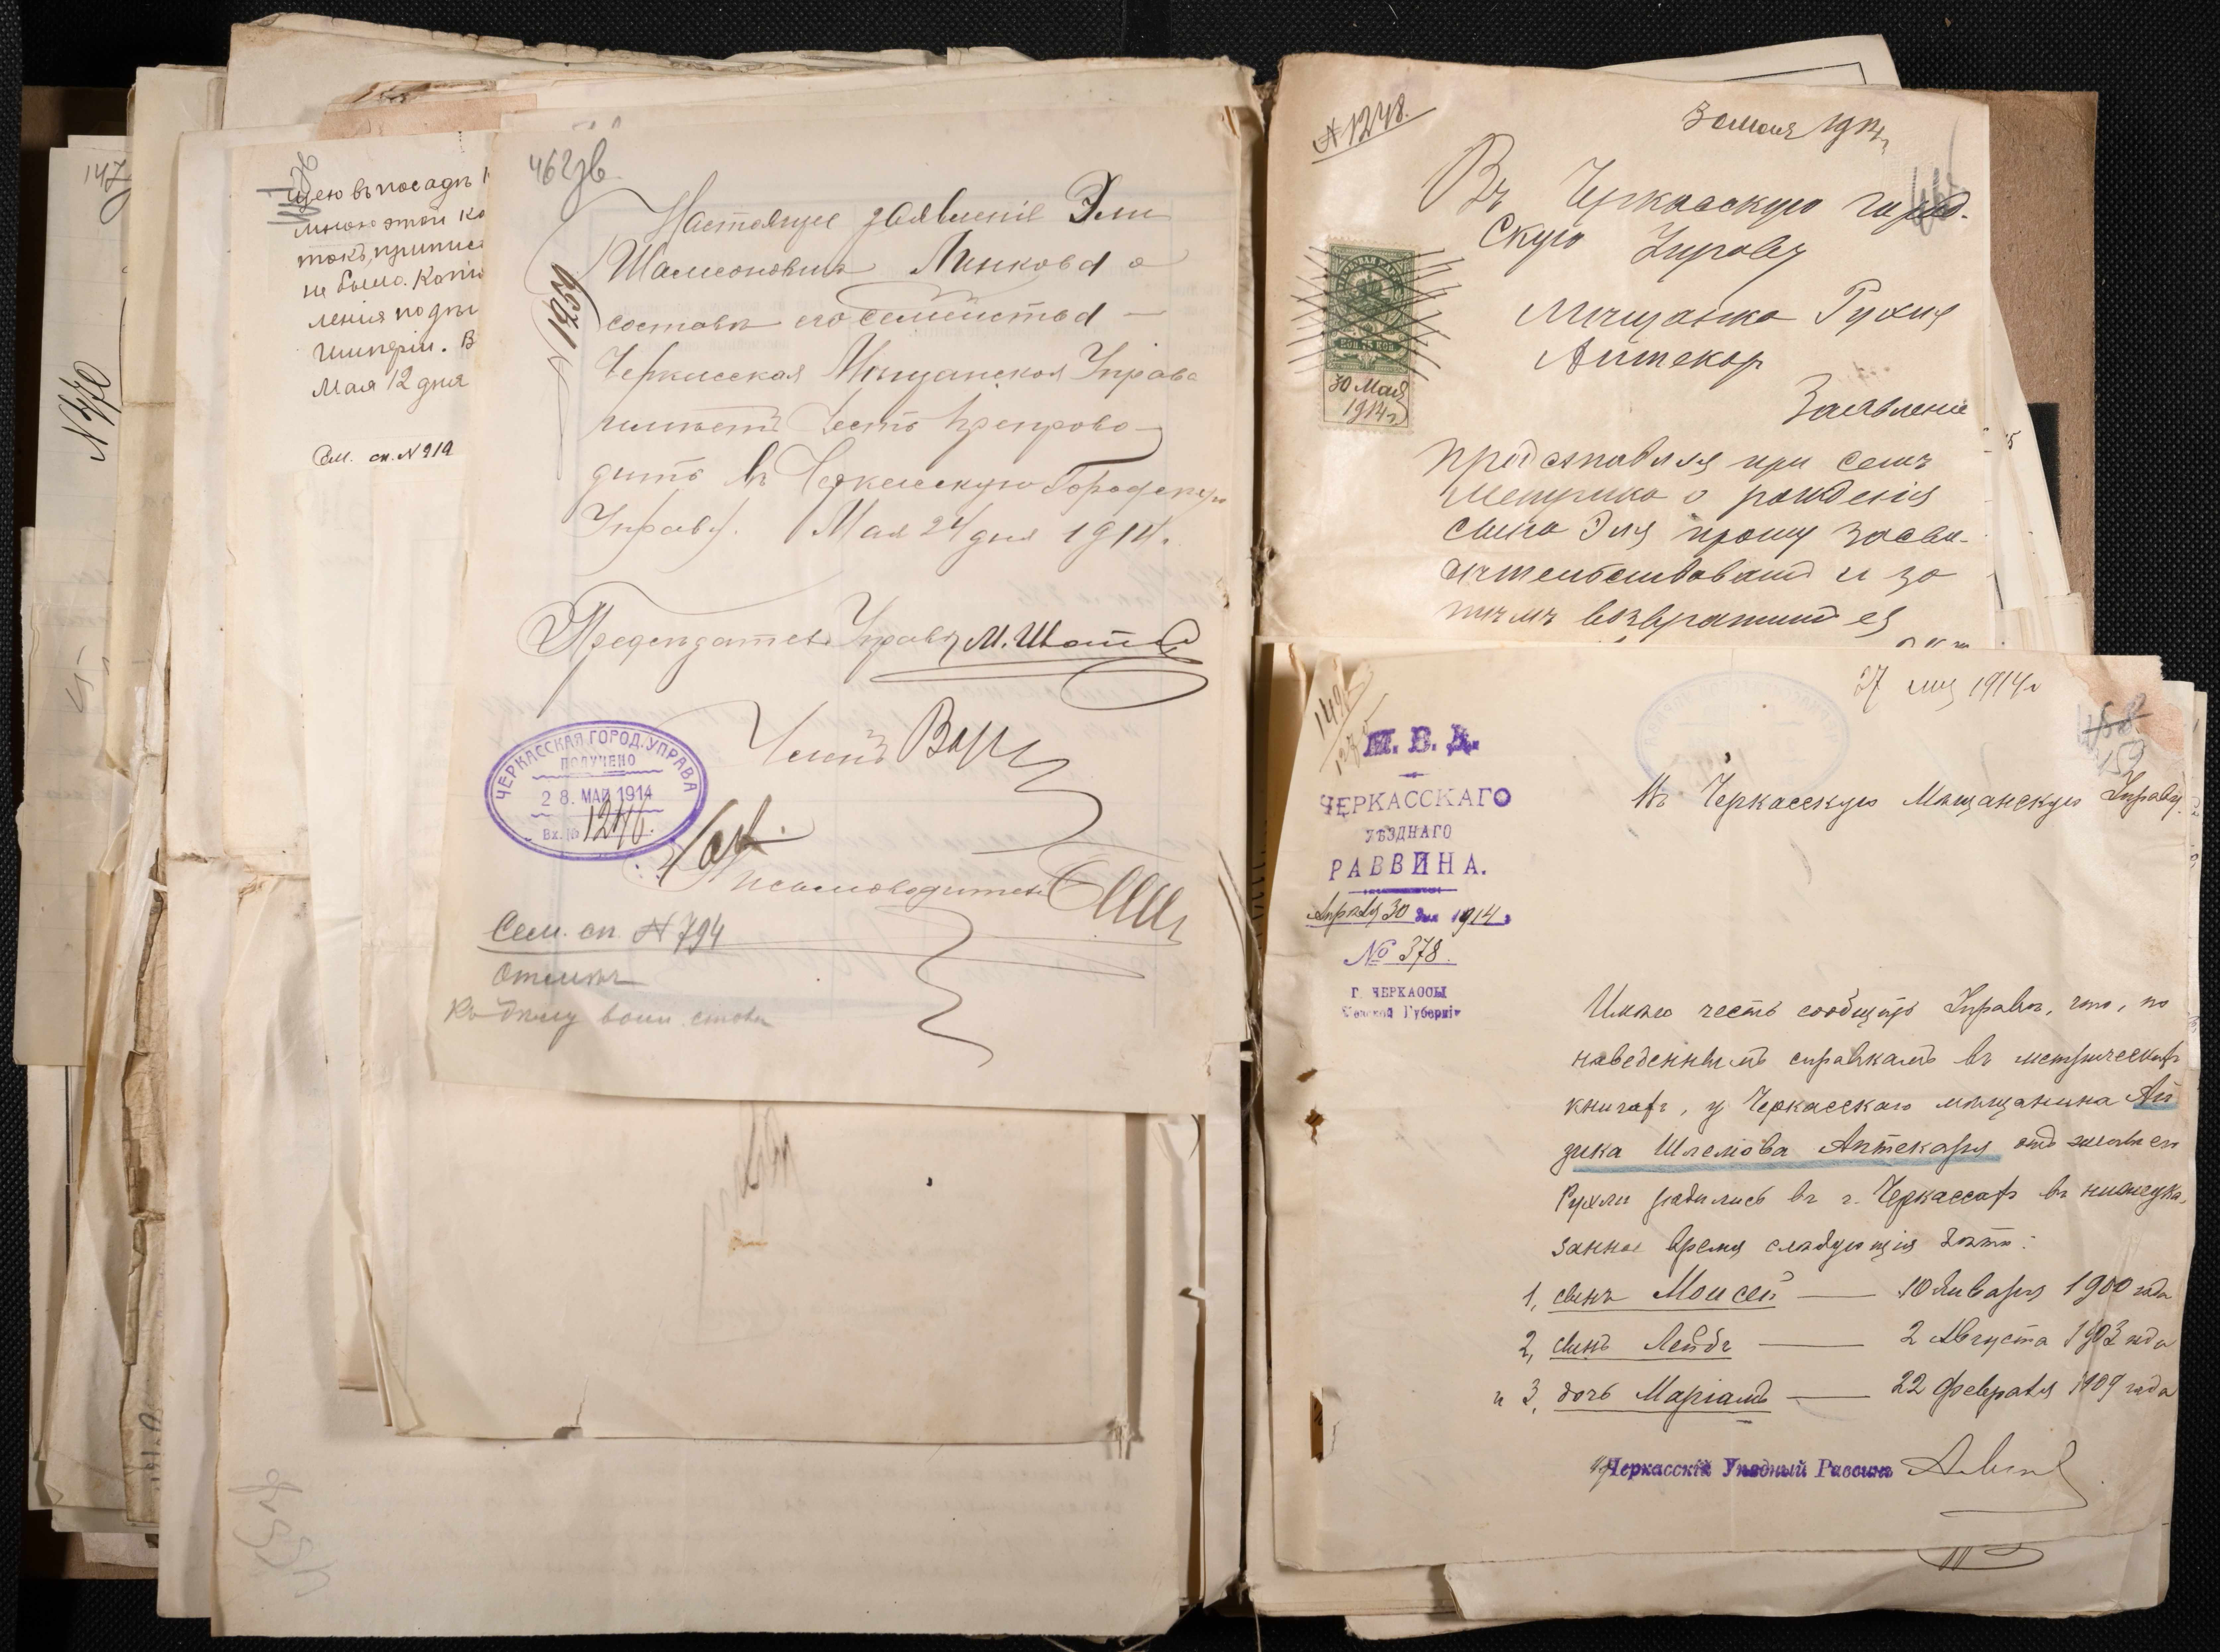 147
N 770
щею въ посадѣ
мною этой ко
токъ, приписа
не было. Копи
ленія подли
Имперіи. В
Мая 12 дня
Сем. сп. N 919
462 зв.
N 1259
Настоящее заявленіе Эли
Шамсоновича Минкова о
составѣ его семейства —
Черкасская Мѣщанская Управа
имѣетъ честь препрово-
дить въ Черкасскую Городскую
Управу. Мая 24 дня 1914 г.
Председатель Управы М.
Членъ
ЧЕРКАССКАЯ ГОРОД. УПРАВА
ПОЛУЧЕНО
28. МАЙ 1914
Вх. № 1246.
Письмоводитель
Сем. сп. № 794
Отмѣт
Къ дѣлу воин.
№ 1248.
30 мая 1914 г.
Въ Черкасскую город-
скую Управу
Мѣщанка Рухля
Аптекар
КОП. 75 КОП.
30 Мая
1914 г.
Заявление
Представляя при семъ
метрика о рождения
сына Эля прошу засви-
дѣтельствоват и за
тѣмъ возвратит ея
27 мая 1914 г
158
159
М. В. Д.
ЧЕРКАССКАГО
УѢЗДНАГО
РАВВИНА.
Апрѣля 30 дня 1914 г.
№ 378.
Г. ЧЕРКАССЫ
Кіевской Губерніи
Въ Черкасскую Мѣщанскую Управу.
Имѣю честь сообщить Управѣ, что, по
наведеннымъ справкамъ въ метрическихъ
книгахъ, у Черкасскаго мѣщанина Ай
зика Шлемова Аптекаря отъ жены его
Рухли родились въ г. Черкассахъ въ нижеука-
занное время слѣдующія дѣти:
1, сынъ Моисей — 10 Января 1900 года
2, сынъ Лейбъ — 2 Августа 1903 года
и 3, дочь Маріамъ — 22 февраля 1909 года
Черкасскій Уѣздный Раввинъ